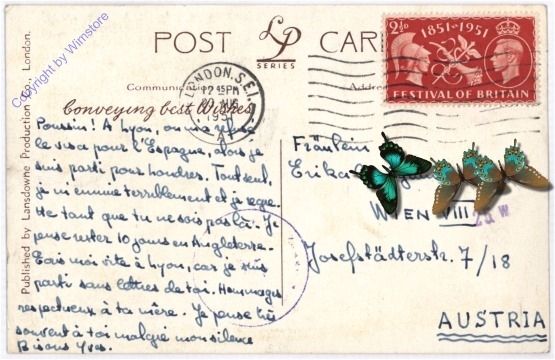 Copyright by Wimstore
Published by Lansdowne Production Co., London.
POST CARD
LP
SERIES
Conveying best Wishes
LONDON. S.E.1
12 15 PM
1951
A
2½D
1851-1951
FESTIVAL OF BRITAIN
Poussin! A Lyon, on m'a refusé
le visa pour l'Espagne, alors je
suis parti pour Londres. Tout seul,
je m'ennuie terriblement et je regre-
tte tant que tu ne sois pas là. Je
pense rester 10 jours en Angleterre.
Ecris moi vite à Lyon, car je suis
parti sans lettres de toi. Hommages
respectueux à ta mère. Je pense très
souvent à toi malgré mon silence
Bisous Yves.
Fräulein
Erika
WIEN VIII
Josefstädterstr. 7/18
AUSTRIA